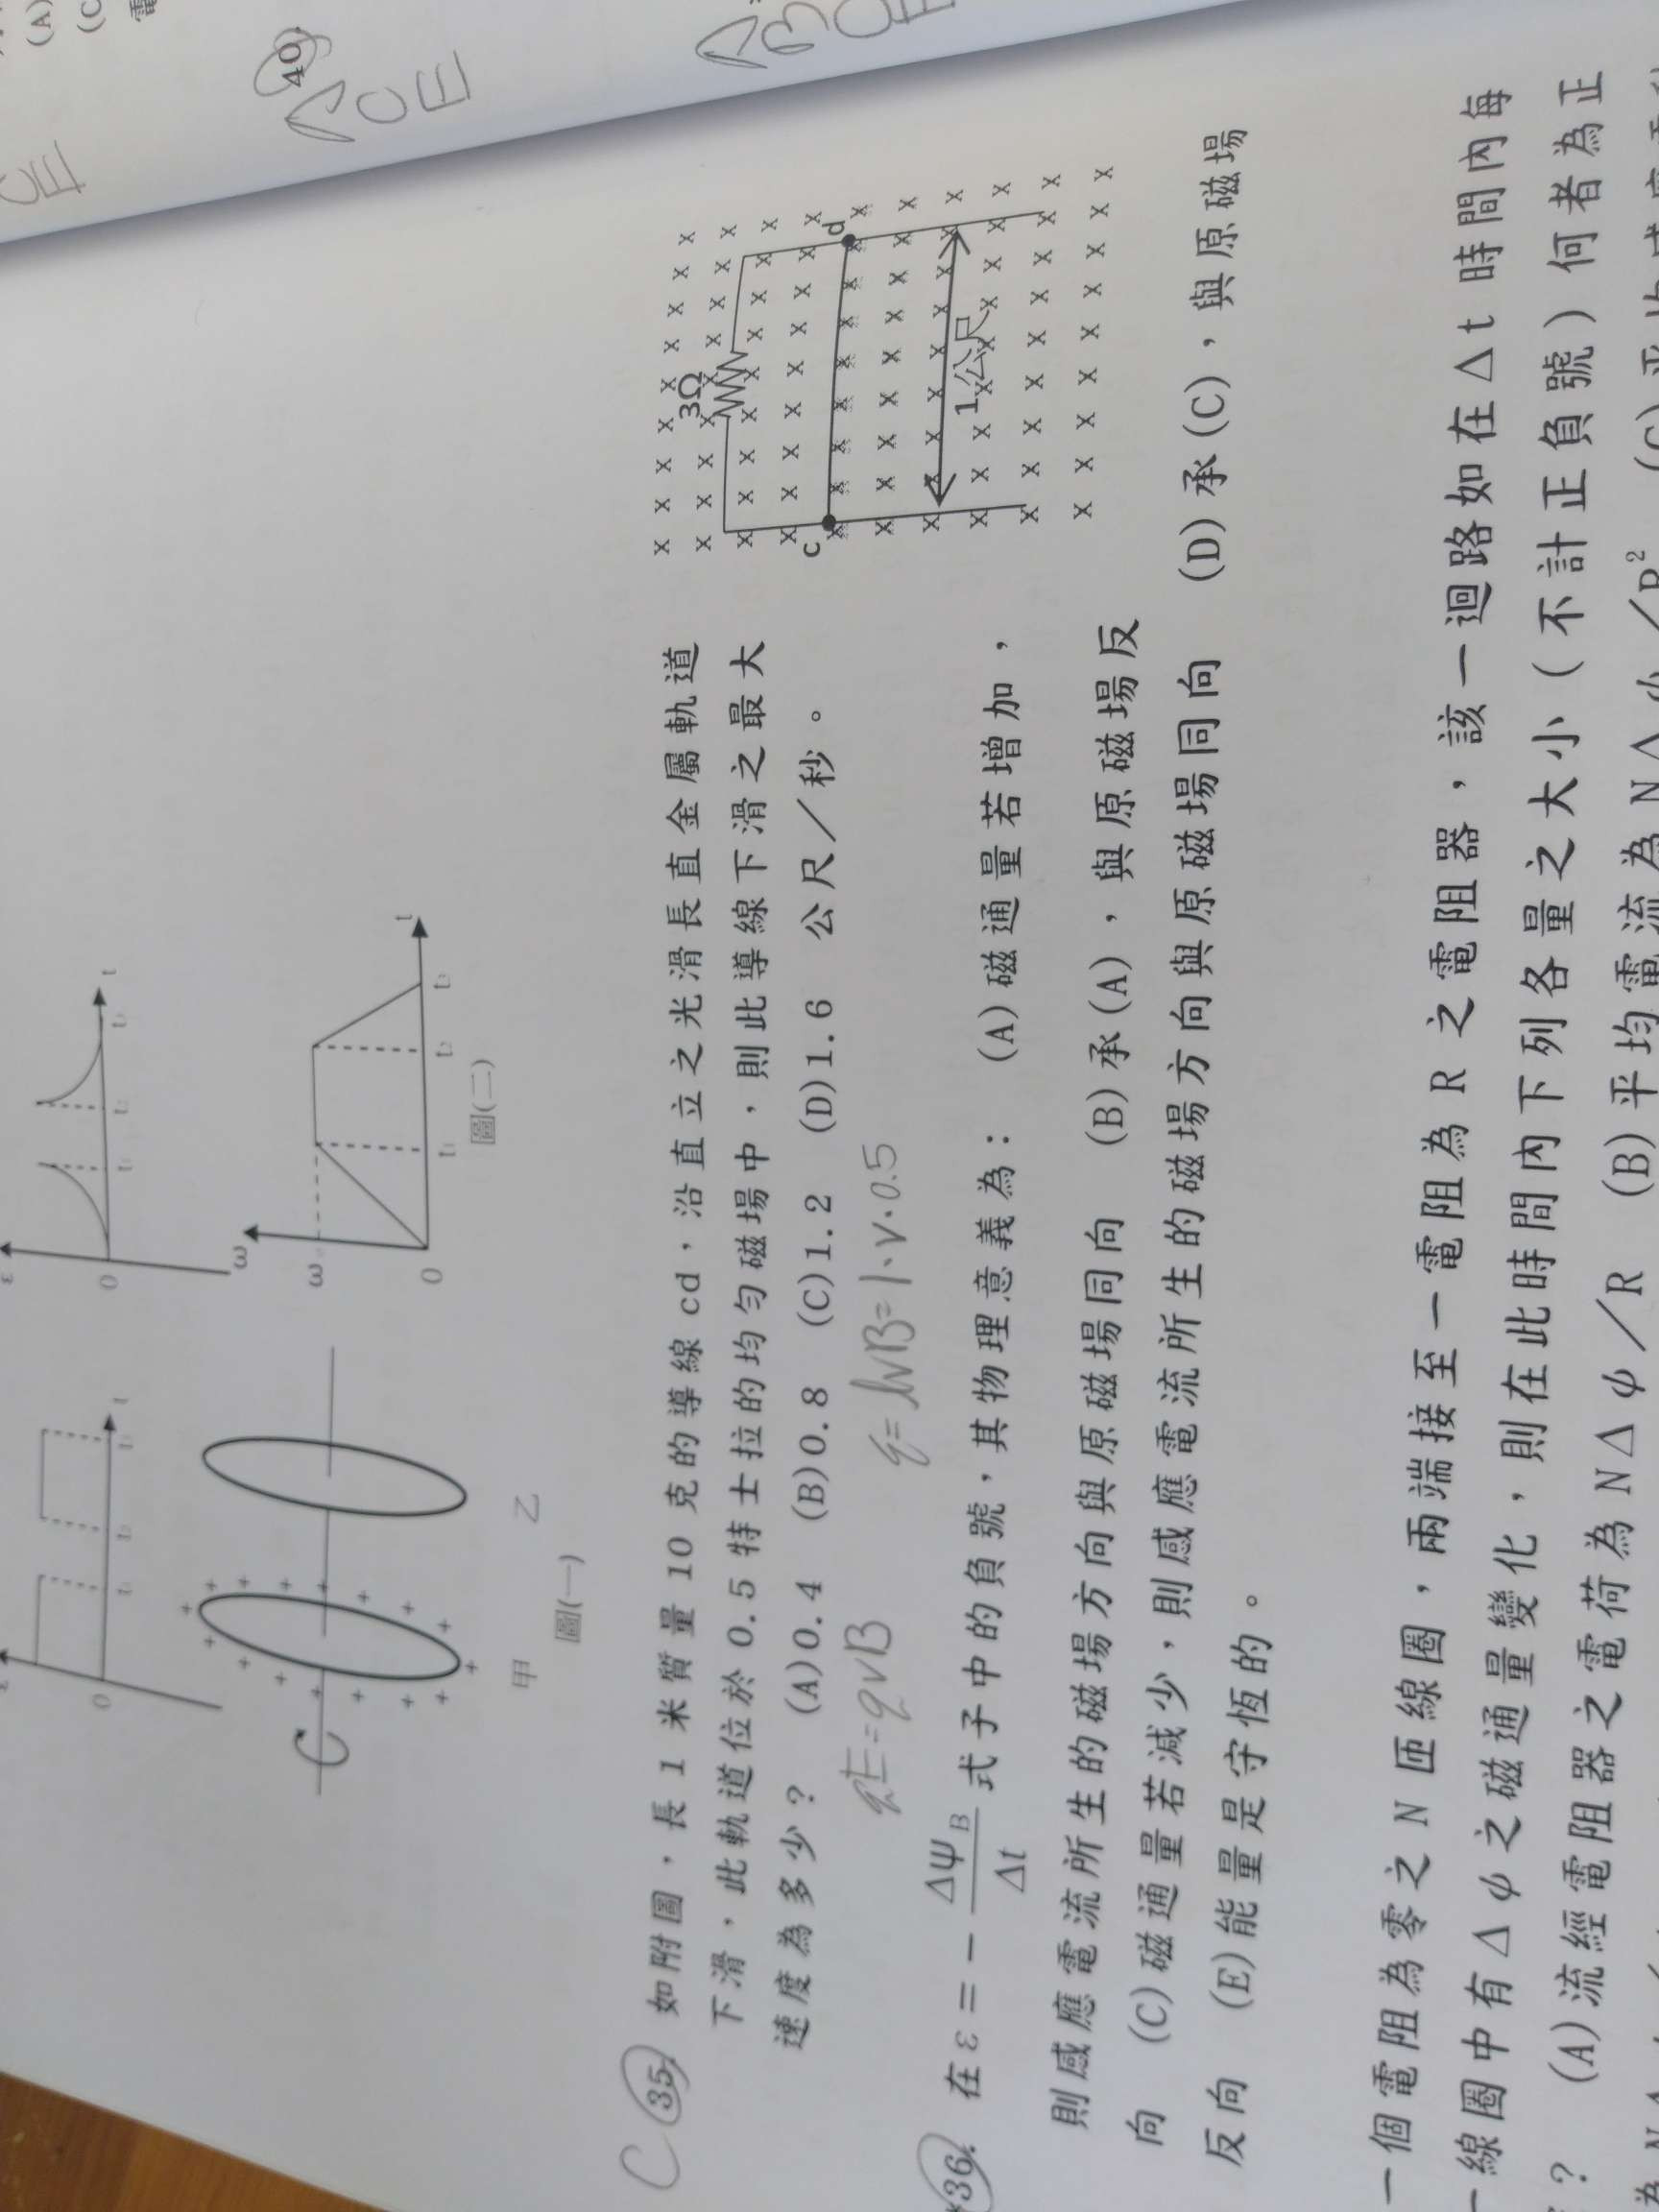 40.
A
C
E
ε
0
t₁
t₂
t₃
t
ε
0
t₁
t₂
t₃
t
甲
乙
圖(一)
ω
ω
0
t₁
t₂
t₃
t
圖(二)
C 35. 如附圖,長 1 米質量 10 克的導線 cd,沿直立之光滑長直金屬軌道
下滑,此軌道位於 0.5 特士拉的均勻磁場中,則此導線下滑之最大
速度為多少? (A)0.4 (B)0.8 (C)1.2 (D)1.6 公尺/秒。
qE=qvB
ε=lvB=1·v·0.5
3Ω
c
d
1公尺
*36. 在 ε = - ΔψB/Δt 式子中的負號,其物理意義為: (A)磁通量若增加,
則感應電流所生的磁場方向與原磁場同向 (B)承(A),與原磁場反
向 (C)磁通量若減少,則感應電流所生的磁場方向與原磁場同向 (D)承(C),與原磁場
反向 (E)能量是守恆的。
一個電阻為零之 N 匝線圈,兩端接至一電阻為 R 之電阻器,該一迴路如在Δt時間內每
一線圈中有Δψ之磁通量變化,則在此時間內下列各量之大小(不計正負號)何者為正
? (A)流經電阻器之電荷為 NΔψ/R (B)平均電流為 NΔψ/R² (C)平均